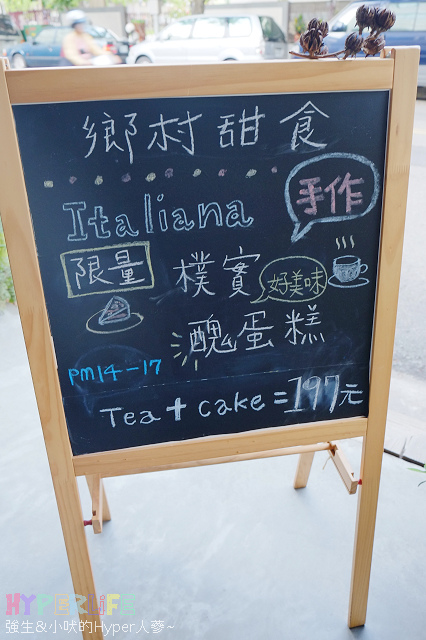 鄉村甜食
Italiana
手作
限量
樸實
好美味
醜蛋糕
pm14-17
Tea+cake=197元
HYPERLIFE
強生&小吠的Hyper人蔘~